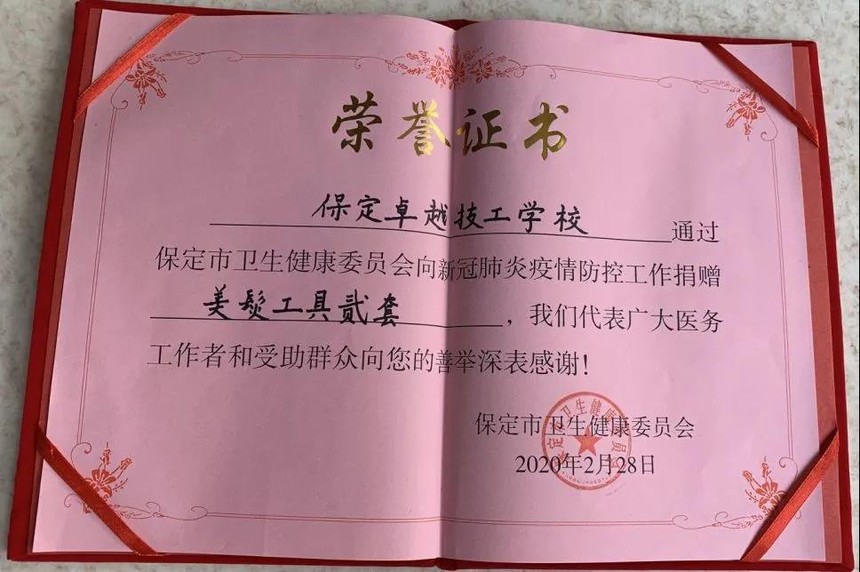 荣誉证书
保定卓越技工学校通过
保定市卫生健康委员会向新冠肺炎疫情防控工作捐赠
美髮工具贰套,我们代表广大医务
工作者和受助群众向您的善举深表感谢!
保定市卫生健康委员会
2020年2月28日